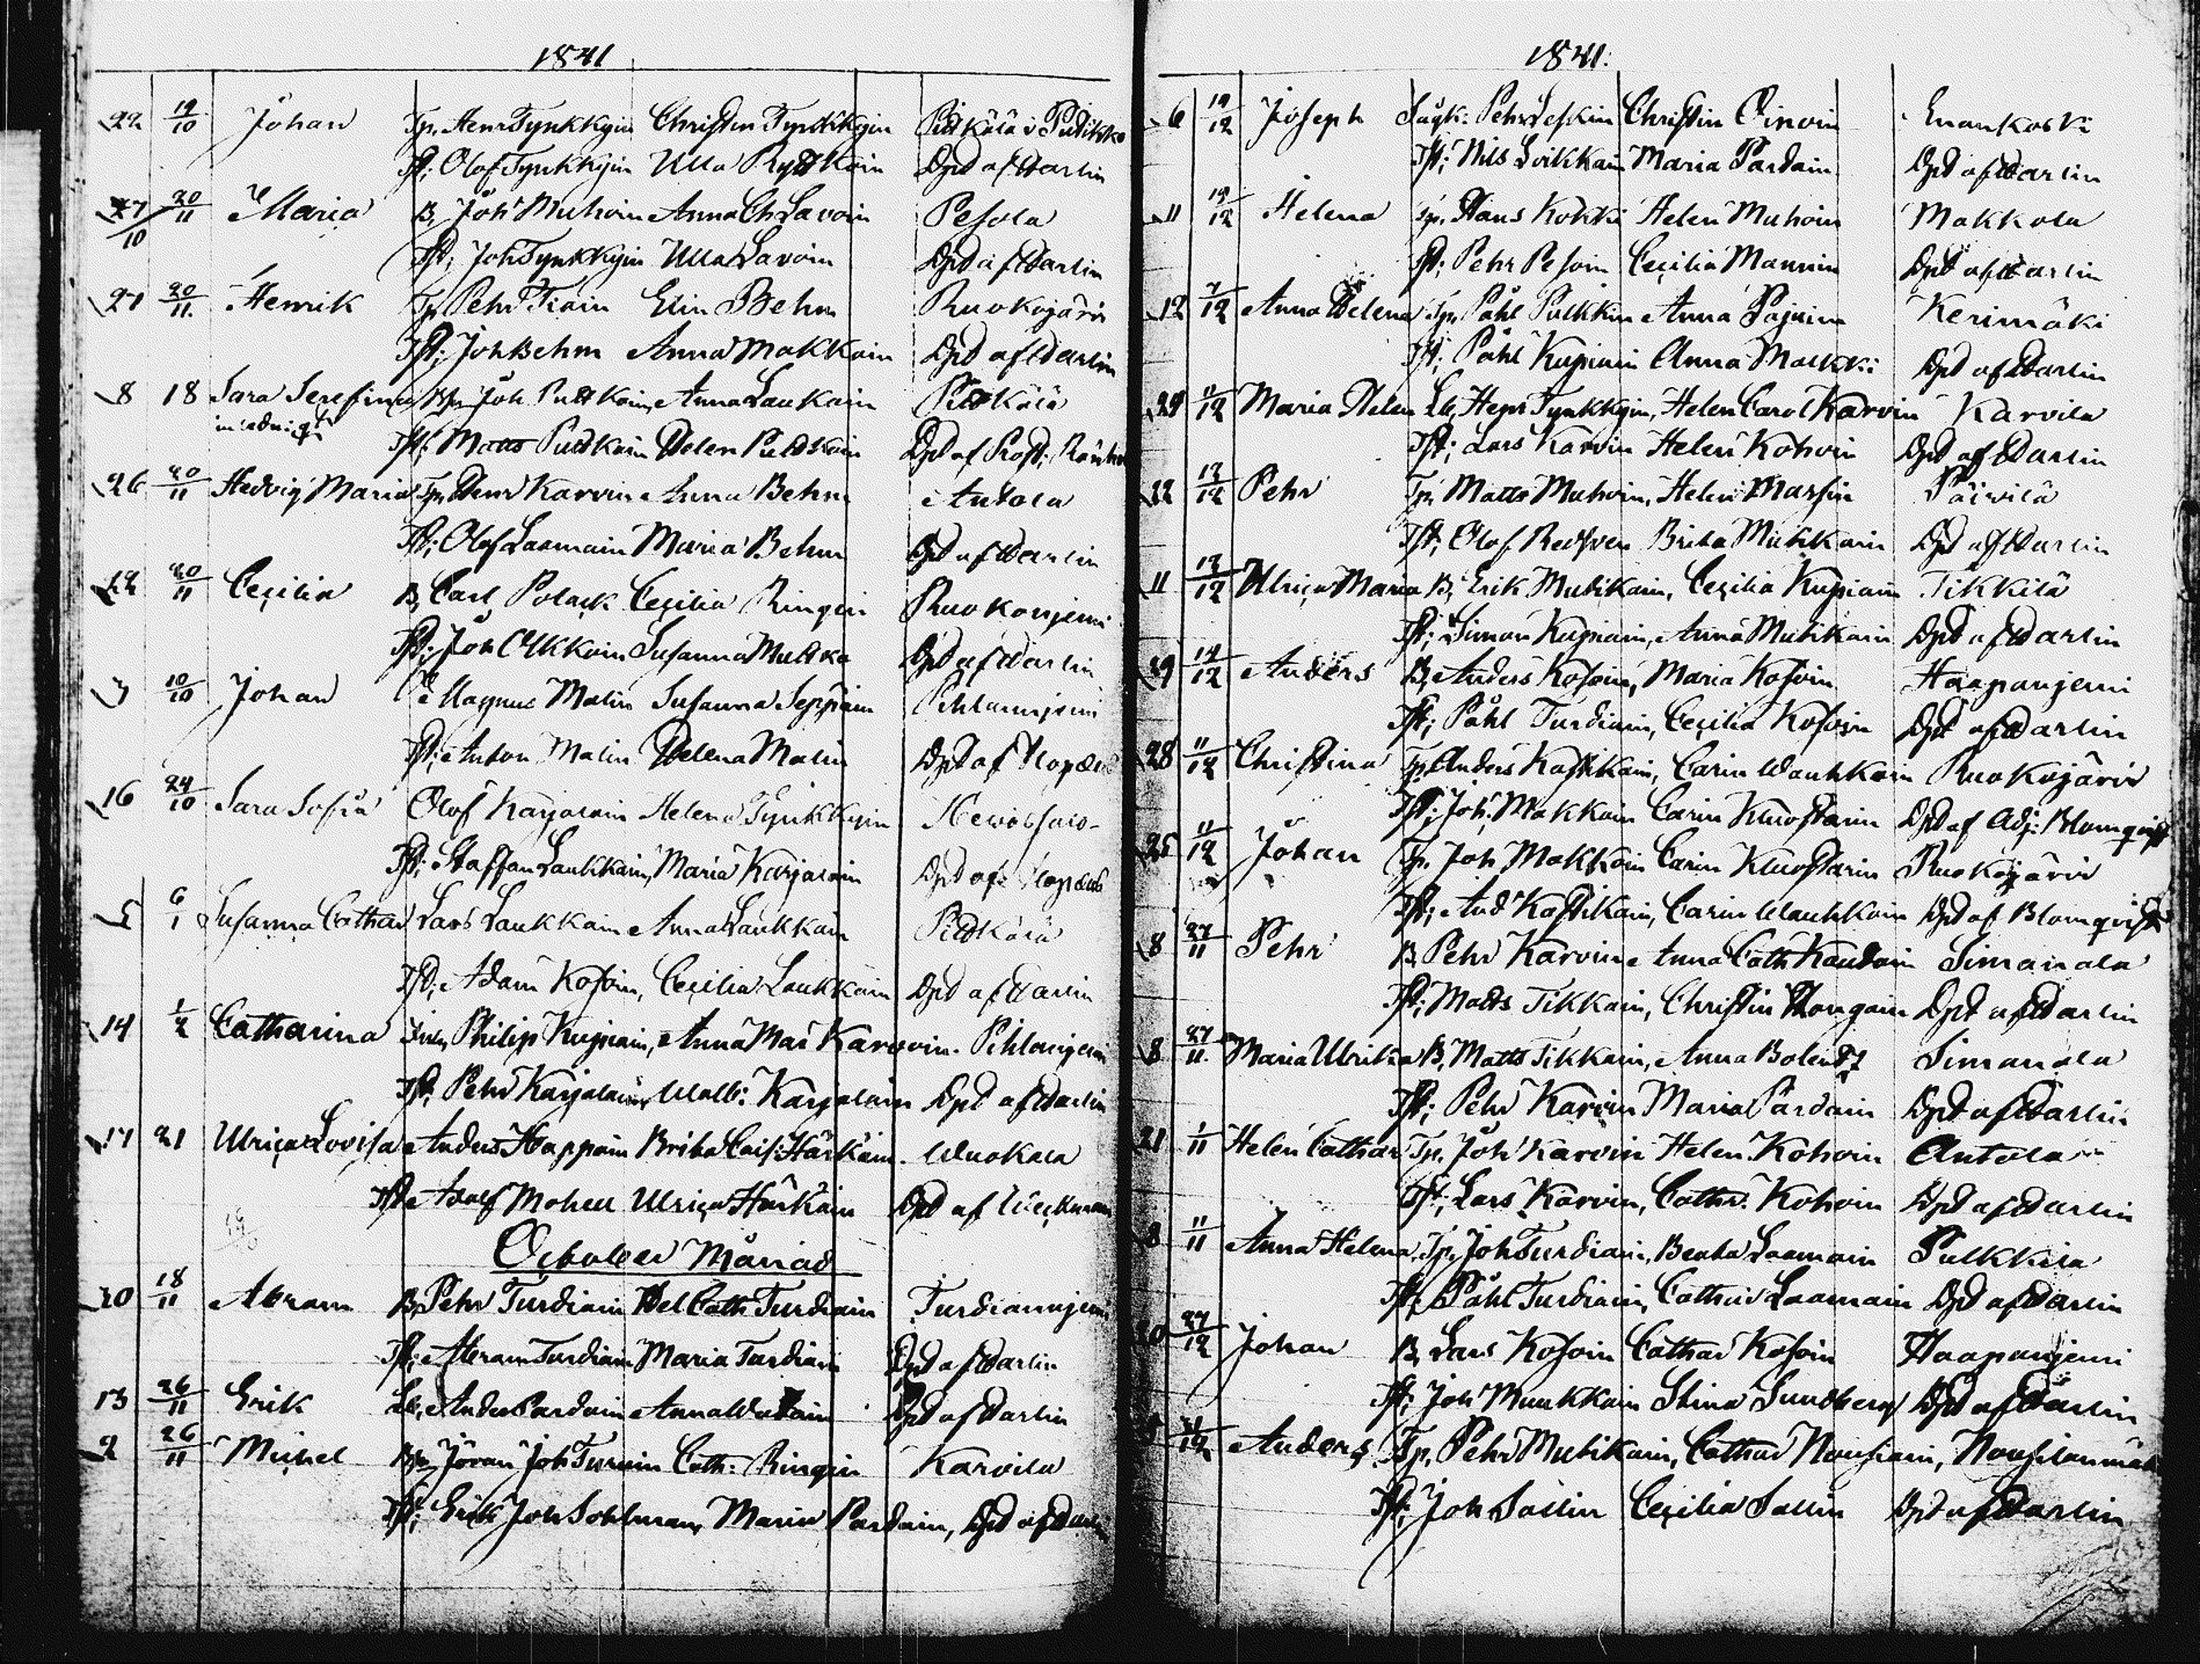 1841
22 19/10 Johan Tp. Henr Tynkkyin Christin Tynkkyin Pitkälä i Putikko
Tst; Olof Tynkkyin Ulla Kain Dpt af Harlin
27/10 20/11 Maria B, Joh Muhoin Anna Ch Lavoin Pesola
Tst; Joh Tynkkyin Ulla Lavoin Dpt af Harlin
27 20/11 Henrik Tp Pehr Tiain Elin Behm Ruokojärvi
Tst; Joh Behm Anna Makkoin Dpt af Harlin
8 18 Sara Serefina Joh Putkoin Anna Laukain Pitkälä
Tst; Matts Putkoin Helen Dpt af Prost;
26 20/11 Hedvig Maria Tp, Henr Karvin Anna Behm Antola
Tst; Olof Laamain Maria Behm Dpt af Harlin
22 20/11 Ceçilia B, Carl Polaçk Ceçilia Ringin Ruokonjemi
Tst; Joh Ulkkoin Susanna Multka Dpt af Harlin
7 10/10 Johan Magnus Malin Susanna Seppäin Pihlaunjemi
Tst; Anton Malin Helena Malin Dpt af
16 24/10 Sara Sofia Olof Karjalain Helena Tynkkyin
Tst; Staffan Laukkain, Maria Karjalain Dpt af
5 6/1 Susanna Cathar Lars Laukkain Anna Laukkain Pitkälä
Tst; Adam Kosoin, Ceçilia Laukkain Dpt af Harlin
14 1/2 Catharina Philip Kupiain, Anna Mar Karvoin. Pihlanjemi
Tst; Pehr Karjalain, Walb: Karjalain Dpt af Harlin
17 21 Ulriça Lovisa Anders Happoin Brita Caisa Härkäin. Wuokala
Tst; Adolf Mohell Ulriça Härkäin Dpt af
October Månad
20 18/11 Abram B, Pehr Turdiain Hel Cath Turdiain Turdianjemi
Tst; Abram Turdiain Maria Turdiain Dpt af Harlin
13 26/11 Erik Lb, Anders Pardain Anna Dpt af Harlin
2 26/11 Michel Jöran Joh Turuin Cath: Ringin Karvila
Tst; Erik Joh Sohlman, Maria Pardain, Dpt af Harlin
1841.
6 19/12 Joseph Pehr Leskin Christin Oinoin Enankoski
Tst; Nils Loikkain Maria Pardain Dpt af Harlin
11 19/12 Helena Tp, Hans Kokki Helen Muhoin Makkola
Tst; Pehr Pesoin Ceçilia Mannin Dpt af Harlin
12 7/12 Anna Helena Tp, Påhl Pulkkin Anna Pajuin Kerimäki
Tst; Påhl Kupiain Anna Malkki Dpt af Harlin
29 12/12 Maria Helen Lb, Henr Tynkkyin, Helen Carol Karvin Karvila
Tst; Lars Karvin Helen Kohoin Dpt af Harlin
22 12/12 Pehr Tp, Matts Muhoin, Helen Massin Päivilä
Tst; Olof Brita Mutikain Dpt af Harlin
11 12/12 Ulriça Maria B, Erik Mutikain, Ceçilia Kupiain Tikkilä
Tst; Simon Kupiain, Anna Mutikain Dpt af Harlin
29 19/12 Anders B, Anders Kosoin, Maria Kosoin Haapanjemi
Tst; Påhl Turdiain, Ceçilia Kosoin Dpt af Harlin
28 11/12 Christina Tp, Anders Kostikain, Carin Wauhkoin Ruokojärvi
Tst; Joh. Makkoin Carin Kluostarin Dpt af Adj: Blomqvist
25 11/12 Johan Tp. Joh Makkoin Carin Kluostarin Ruokojärvi
Tst; And Kostikain, Carin Wauhkoin Dpt af Blomqvist
8 27/11 Pehr B, Pehr Karvin Anna Cath Kaudoin Simanala
Tst; Matts Tikkain, Christin Hongain Dpt af Harlin
8 27/11. Maria Ulrika B, Matts Tikkain, Anna Simanala
Tst; Pehr Karvin Maria Pardain Dpt af Harlin
21 1/11 Helen Cathar Tp, Joh Karvin Helen Kohoin Antola
Tst; Lars Karvin, Cathr. Kohoin Dpt af Harlin
8 11/11 Anna Helena Tp, Joh Turdiain, Beata Laamain Pulkkila
Tst; Påhl Turdiain, Cathar Laamain Dpt af Harlin
20 27/12 Johan B, Lars Kosoin Cathar Kosoin Haapanjemi
Tst; Joh Muukkain Stina Sundberg Dpt af Harlin
Anders Tp, Pehr Mutikain, Cathar Nousiain, Nousilanmäki
Tst; Joh Sallin Ceçilia Sallin Dpt af Harlin